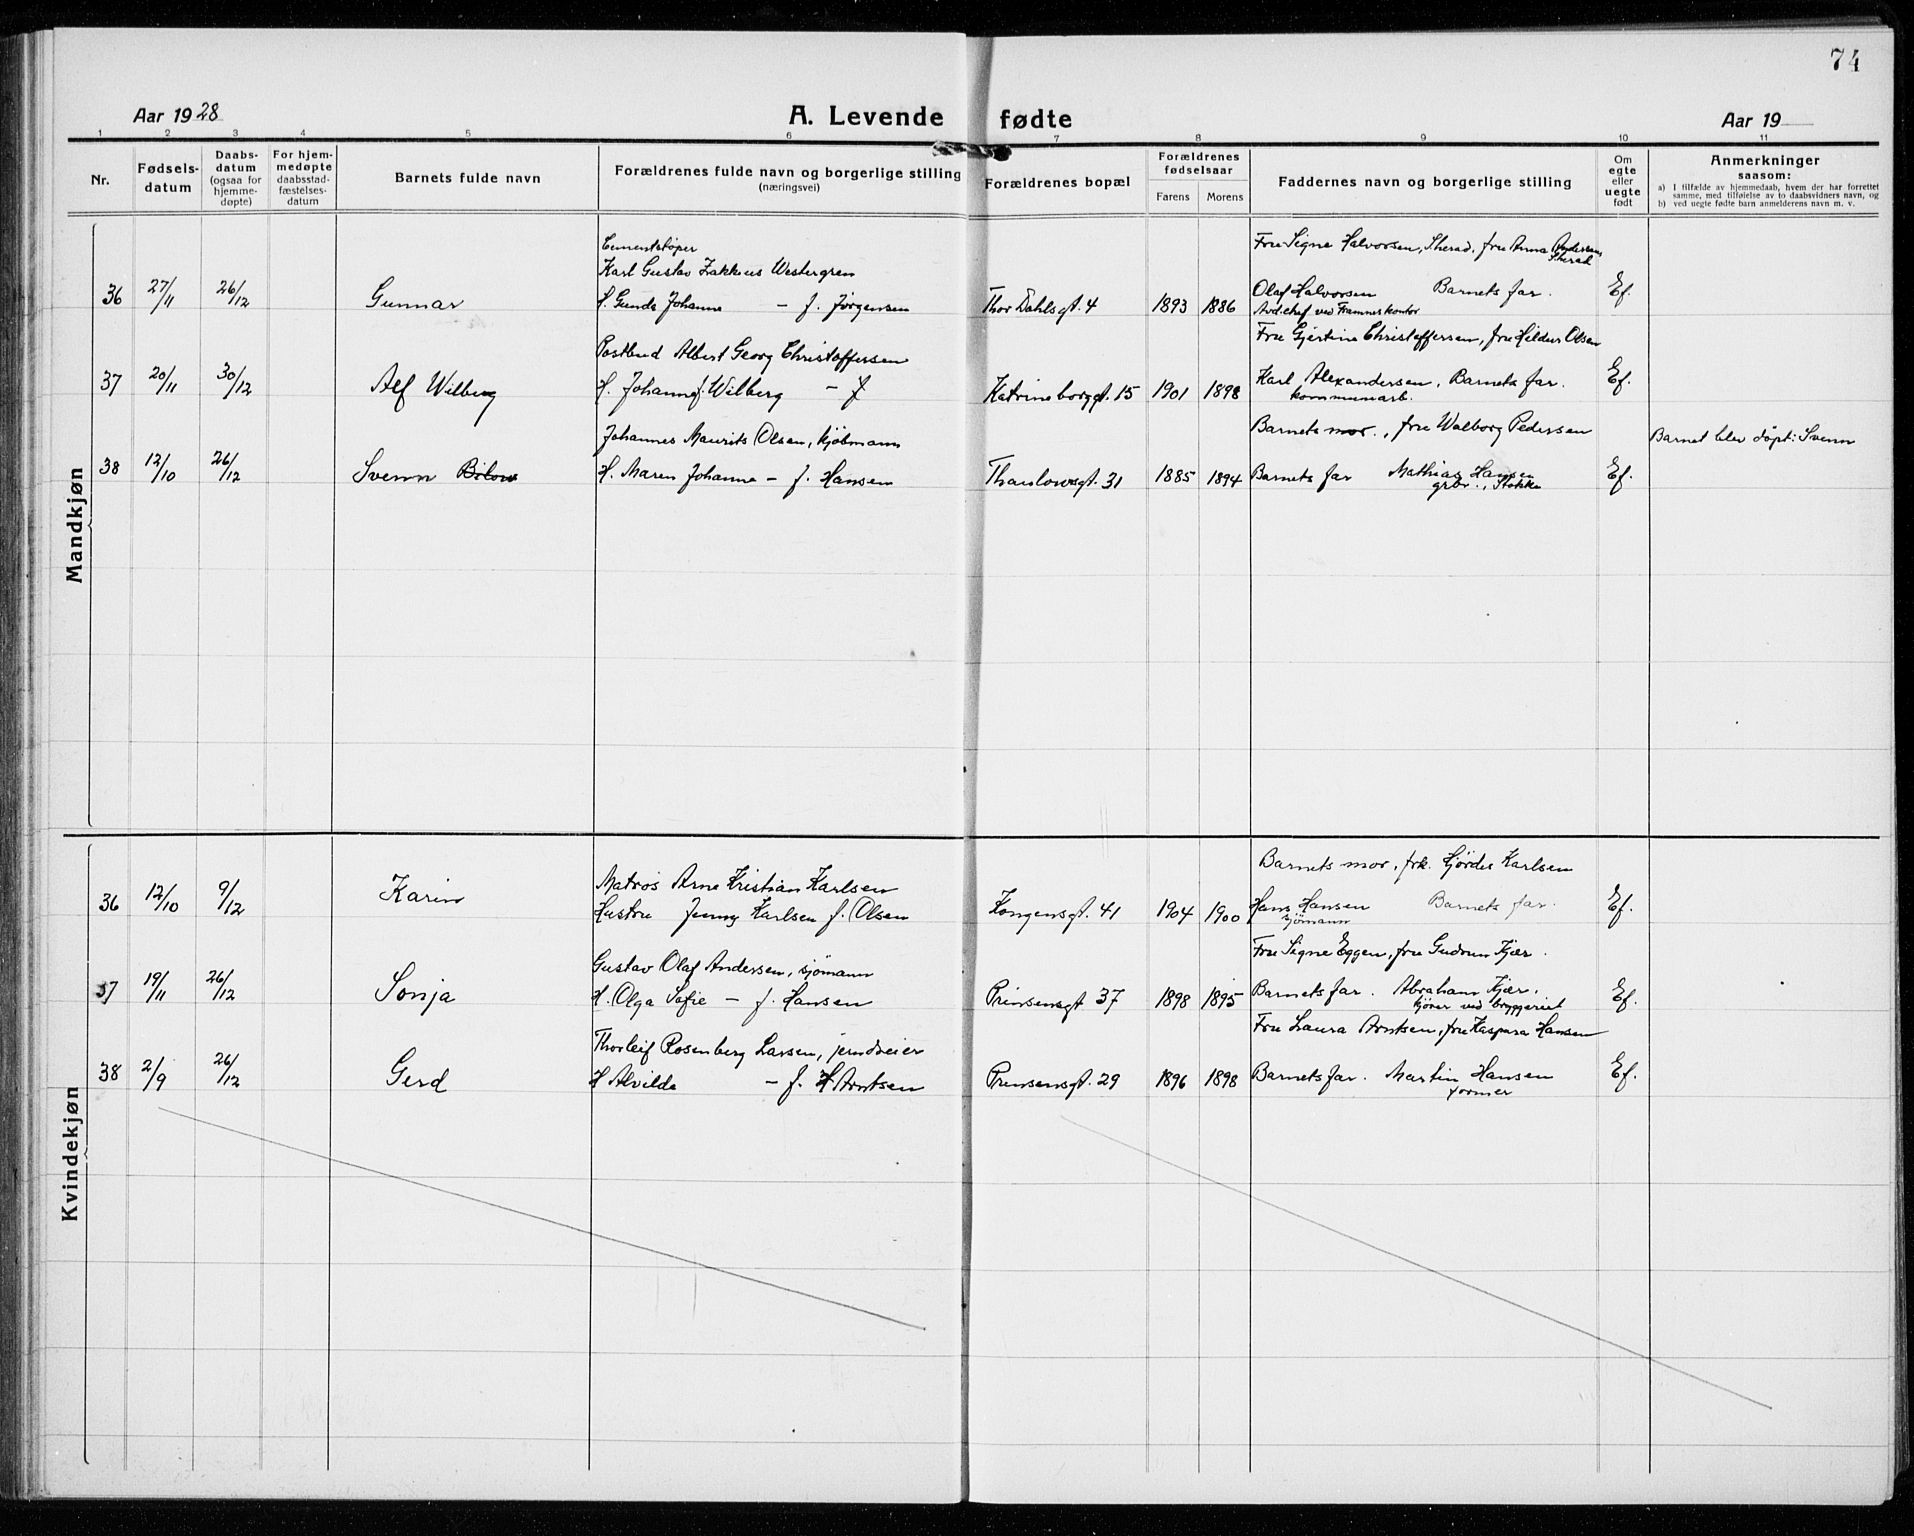 74
Aar 1928
A. Levende fødte
Aar 19
1 2 3 4 5 6 7 8 9 10 11
Nr.
Fødsels-
datum
Daabs-
datum
(ogsaa for
hjemme-
døpte)
For hjem-
medøpte
daabsstad-
fæstelses-
datum
Barnets fulde navn
Forældrenes fulde navn og borgerlige stilling
(næringsvei)
Forældrenes bopæl
Forældrenes
fødselsaar
Farens Morens
Faddernes navn og borgerlige stilling
Om
egte
eller
uegte
født
Anmerkninger
saasom:
a) I tilfælde av hjemmedaab, hvem der har forrettet
samme, med tilføielse av to daabsvidners navn, og
b) ved uegte fødte barn anmelderens navn m. v.
Mandkjøn
Cementstøper
Karl Gustav Zakkeus Westergren
Fru Signe Halvorsen, Sherad, fru Anna Andersen
Sherad
36 27/11 26/12 Gunnar H. Gunda Johanne — f. Jørgensen Thor Dahlsgt. 4 1893 1886 Olaf Halvorsen Barnets far. Ef.
Avd.chef ved Framnes kontor
Postbud Albert Georg Christoffersen
Fru Gjertine Christoffersen, fru Hildur Olsen
37 20/11 30/12 Alf Wilberg H. Johanne f. Wilberg — f Katrineborggt. 15 1901 1898 Karl Alexandersen, Barnets far. Ef.
kommunearb.
Johannes Maurits Olsen, kjøbmann
Barnets mor., fru Walborg Pedersen
Barnet blev døpt: Svenn
38 12/10 26/12 Svenn Bilow H. Maren Johanne — f. Hansen Thaulowsgt. 31 1885 1894 Barnets far Mathias Hansen Ef.
grbr., Stokke
Kvindekjøn
Matros Arne Kristian Karlsen
Barnets mor, frk. Hjørdis Karlsen
36 12/10 9/12 Karin Hustru Jenny Karlsen f. Olsen Kongensgt. 41 1904 1900 Hans Hansen Barnets far. Ef.
sjømann
Gustav Olaf Andersen, sjømann
Fru Signe Eggen, fru Gudrun Kjær.
37 19/11 26/12 Sonja H. Olga Sofie — f. Hansen Prinsensgt 37 1898 1895 Barnets far. Abraham Kjær, Ef.
kjører ved bryggeriet
Thorleif Rosenberg Larsen, jerndreier
Fru Laura Arntsen, fru Kaspara Hansen
38 2/9 26/12 Gerd H Alvilde — f. Arntsen Prinsensgt. 29 1896 1898 Barnets far. Martin Hansen Ef.
former